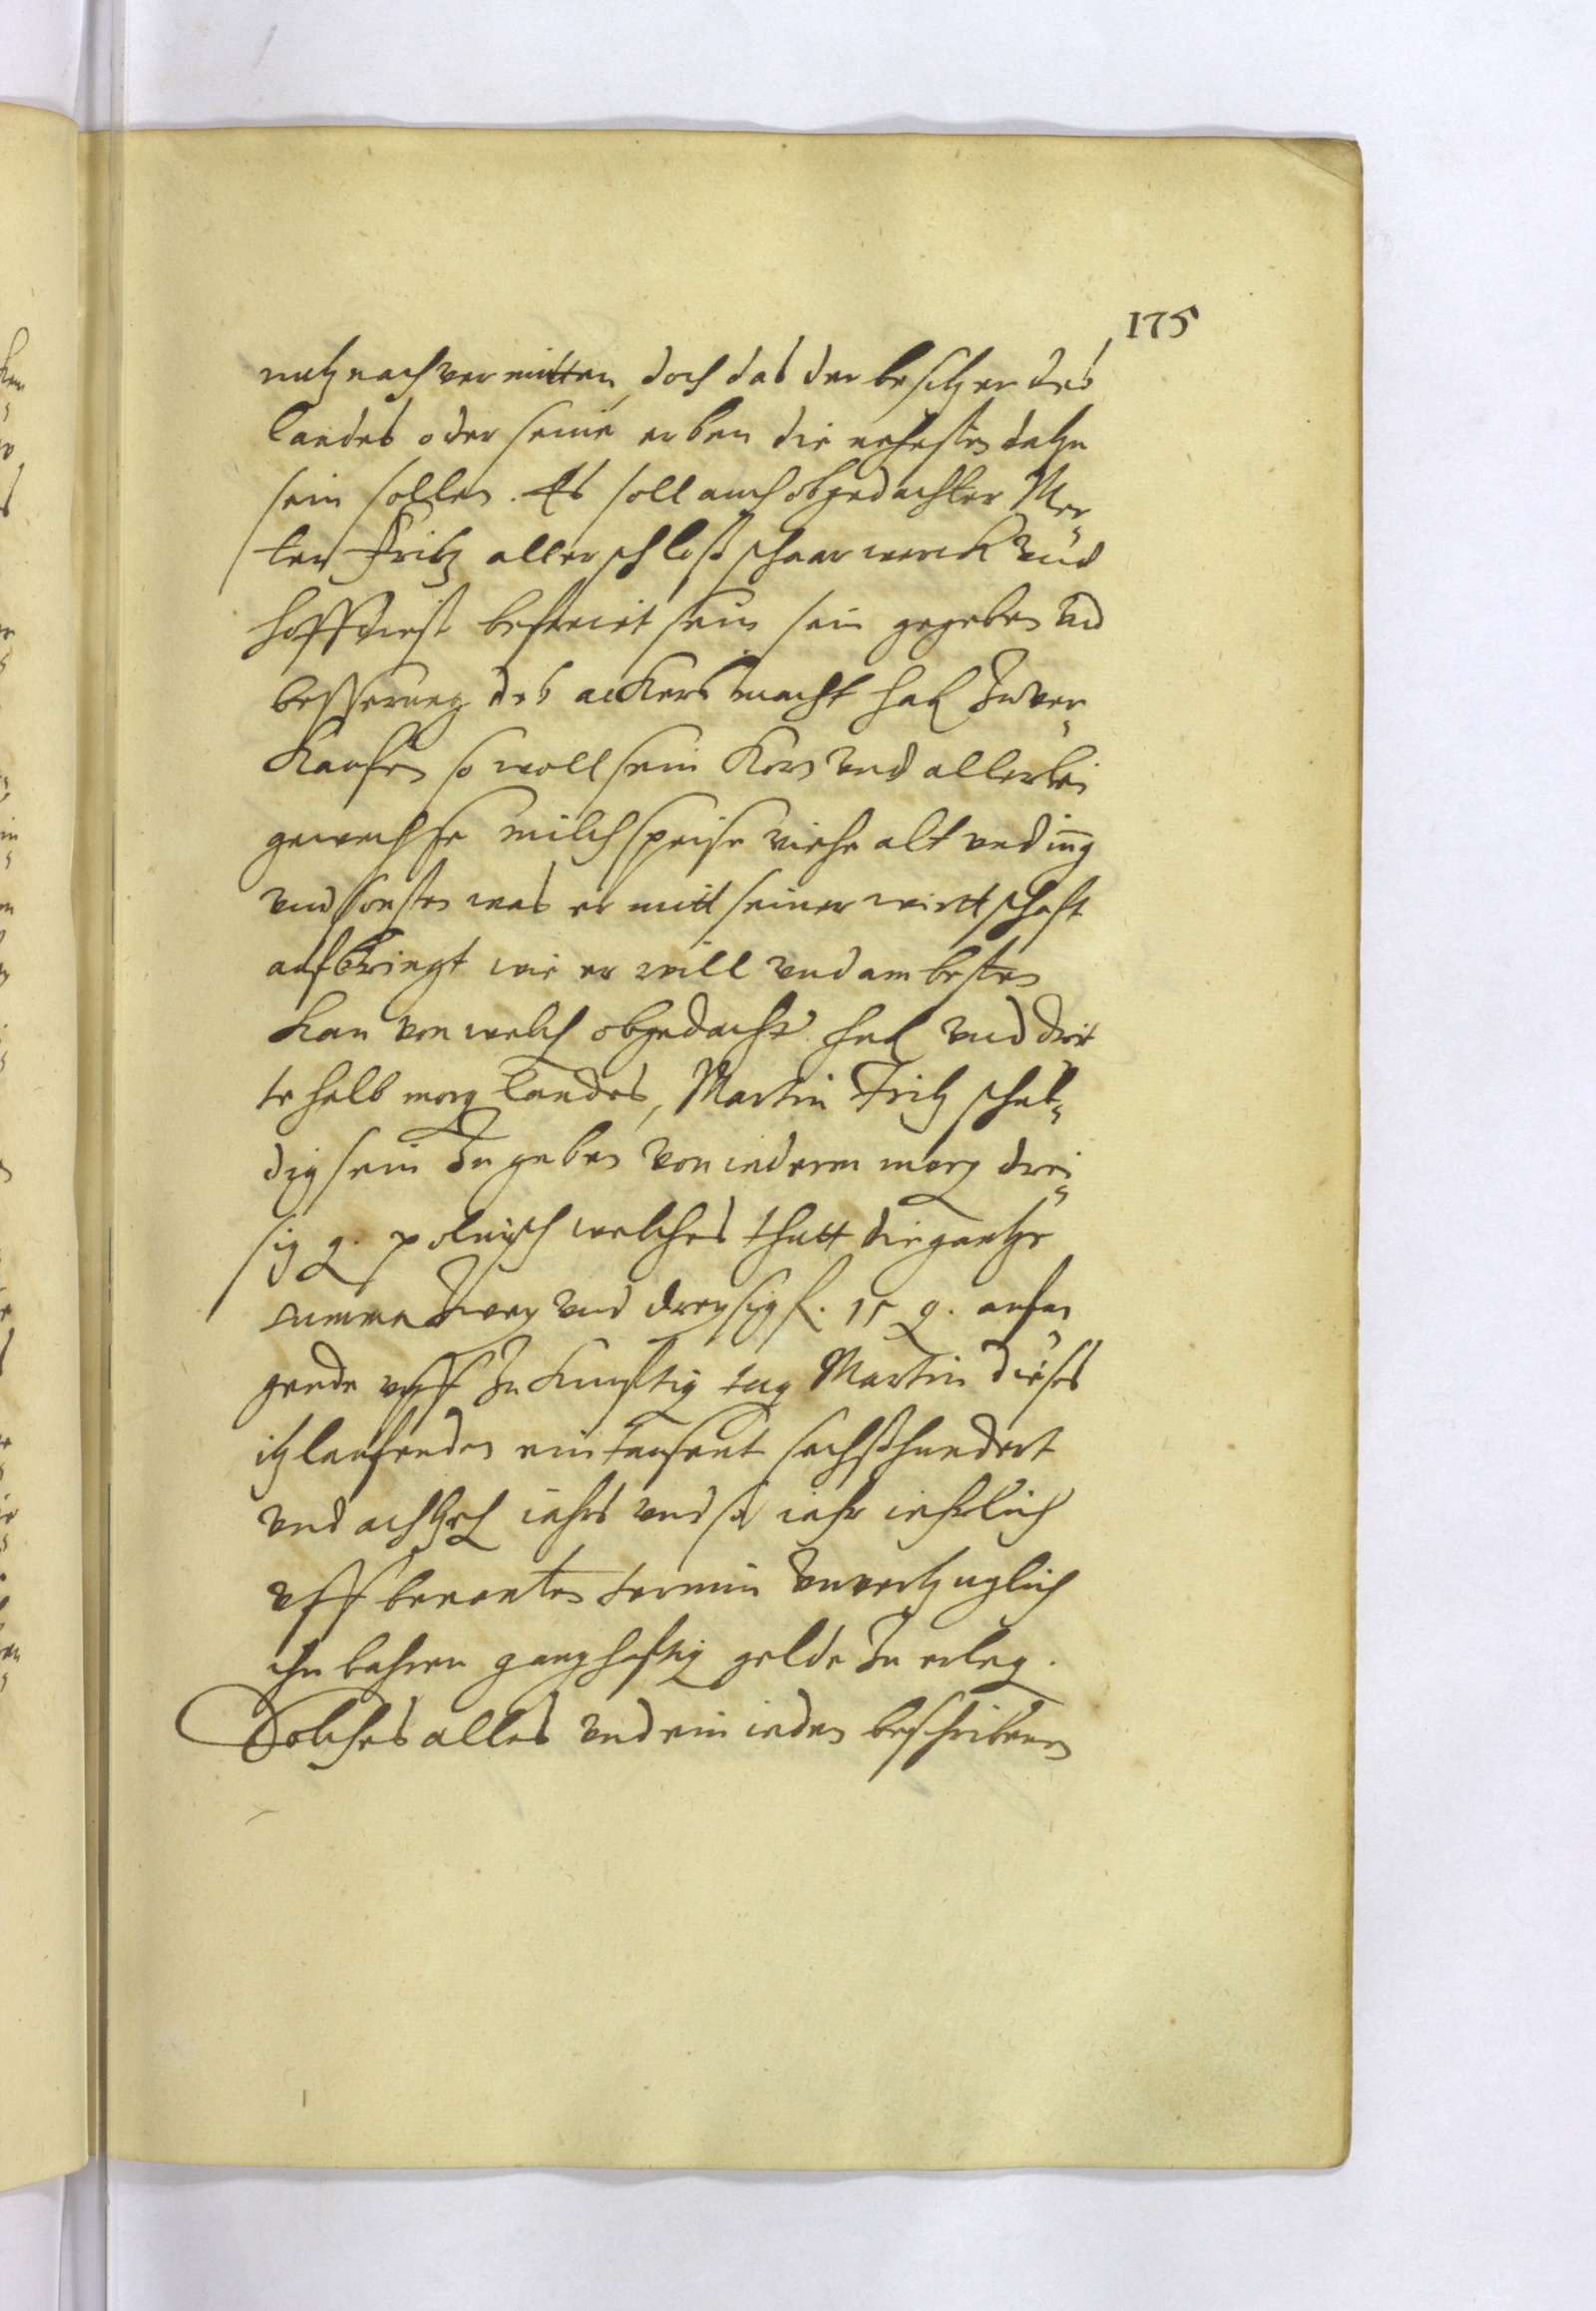 175
nutz nach vermitten, doch das der besitzer des
landes oder seine erben die nehesten datzu
sein sollen. Es soll auch obgedachter Mer¬
ten Fritz aller schloß schaarwerck und
hoffdinst befreiet sein, sein gegeben und
besserung des ackers macht hab zuver¬
kaufen so woll sein korn und allerlei
gewechse milchspeise viehe alt und iung
und sonsten was er mitt seiner wirttschaft
aufbringt wie er will und am besten
kan von welch obgedacht hub und drit
te halb morg landes, Martin Fritz schul¬
dig sein zu geben von iederm morg drei¬
sig g. polnisch welches thutt die gantze
summa zwey und dreysig f. 15 g. anfan
gende uff zu kunftig tag Martin dieses
itzlaufenden ein tausent sechßhundert
und achtzeh iahrs und so iahr iehrlich
uff benanten termin unvertzuglich
ihn bahren ganghaftig gelde zu erleg.
Solches alles und ein ieden beschribenen